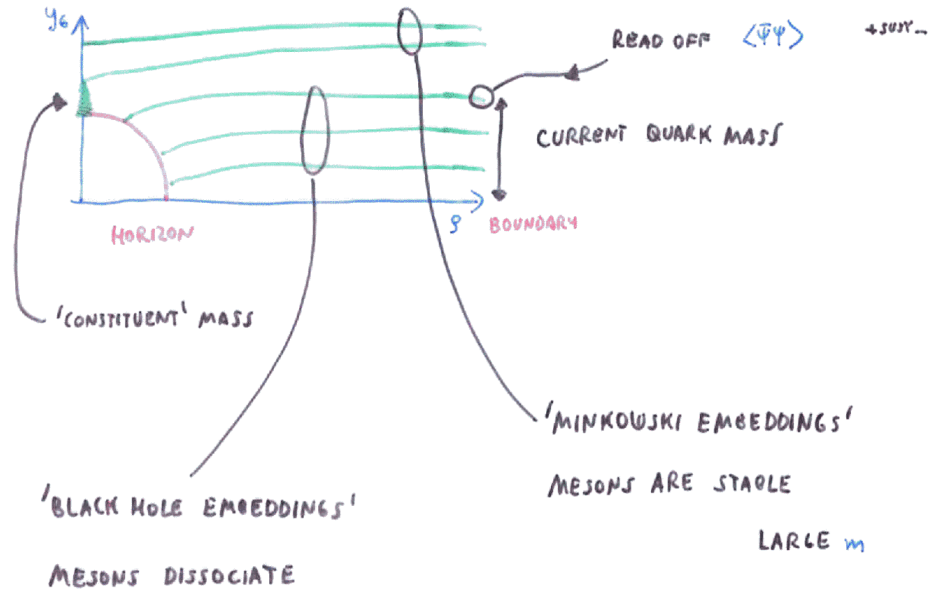 y₆
READ OFF ⟨Ψ̄Ψ⟩ +SUSY_
CURRENT QUARK MASS
ρ BOUNDARY
HORIZON
'CONSTITUENT' MASS
'MINKOWSKI EMBEDDINGS'
MESONS ARE STABLE
'BLACK HOLE EMBEDDINGS'
LARGE m
MESONS DISSOCIATE